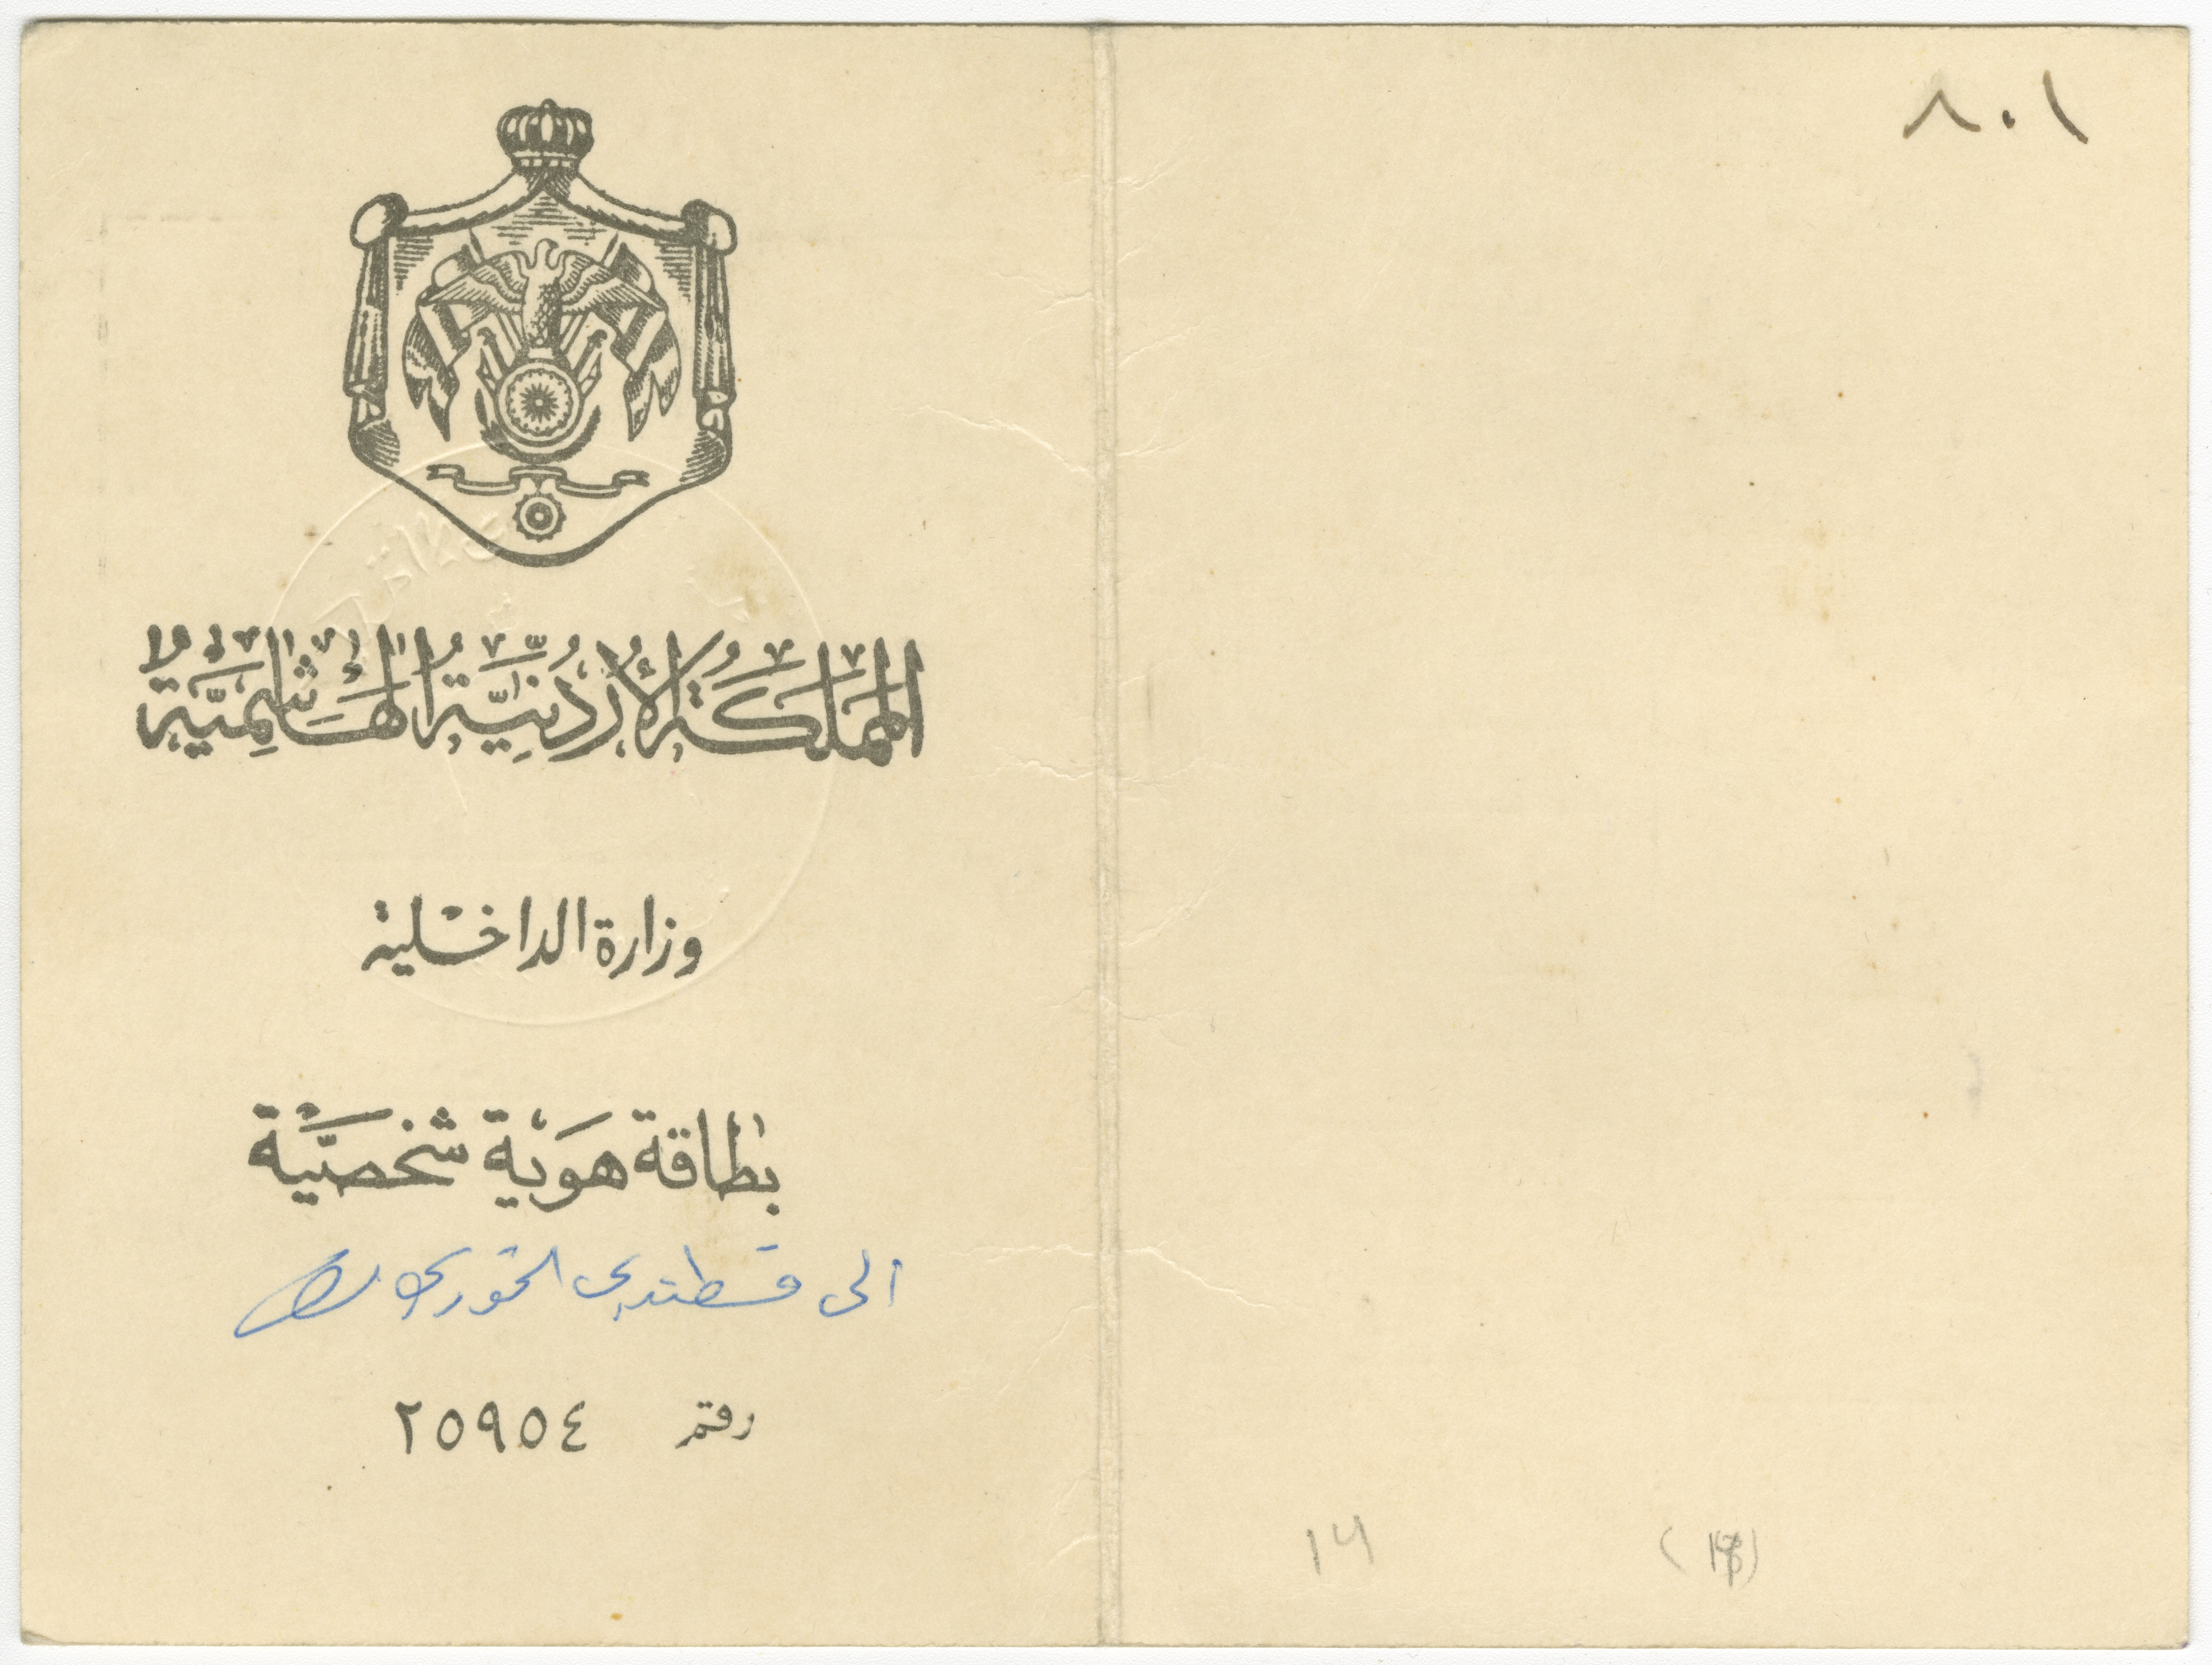 ٨٠١
المَملَكَةُ الأُردُنِيَّةُ الهَاشِمِيَّةُ
وزارة الداخلية
بطاقة هَوية شخصيَّة
الى قسطندي الخوري
رقم ٢٥٩٠٤
14